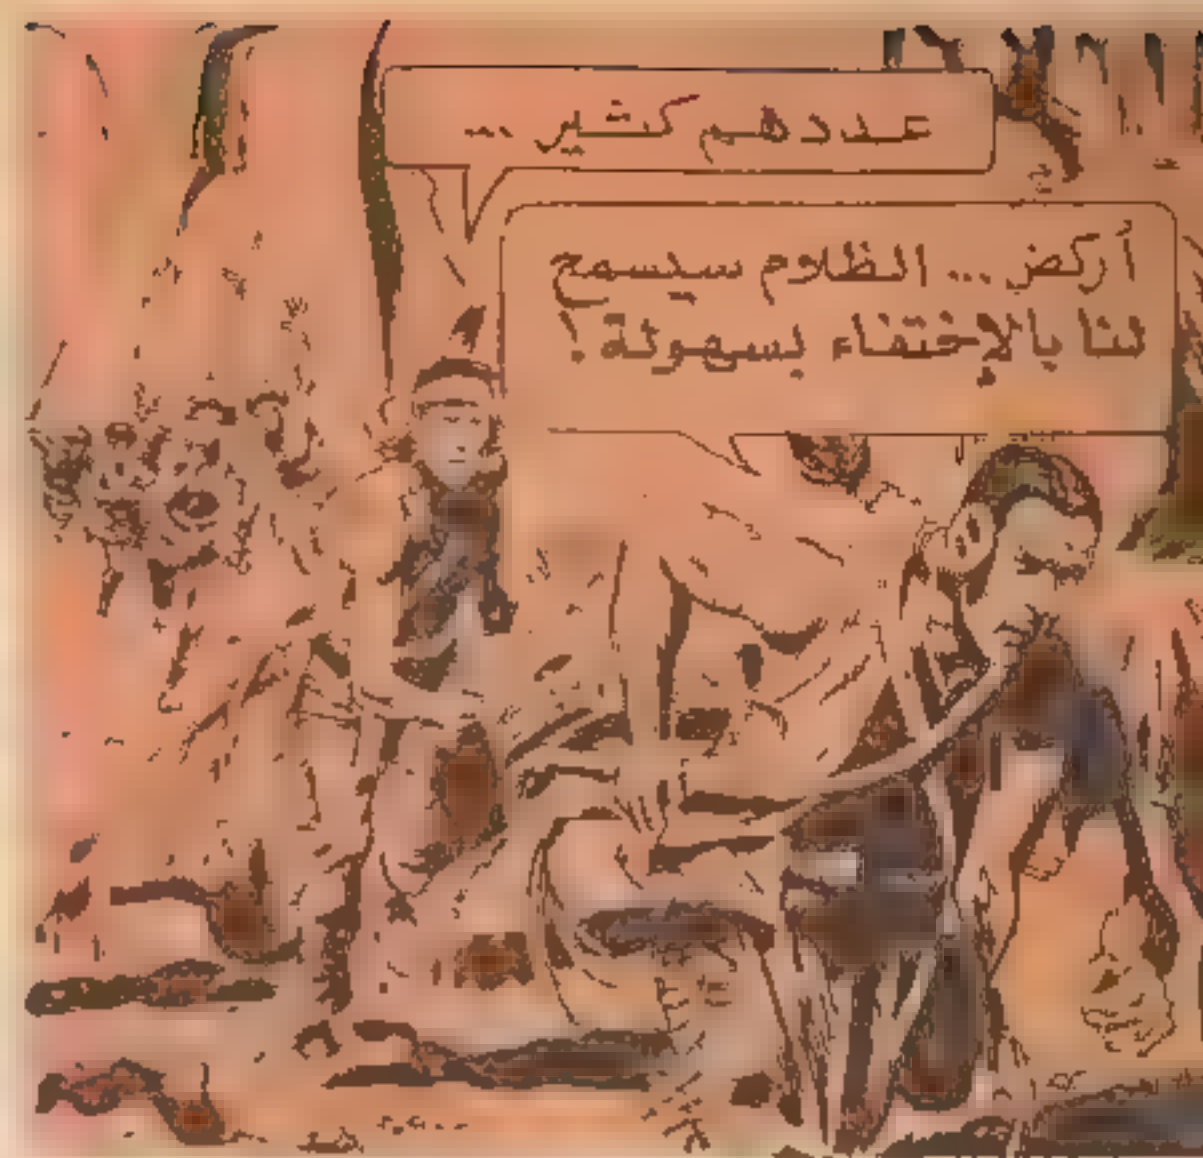 عددهم كثير ...
أركض ... الظلام سيسمح
لنا بالإختفاء بسهولة !